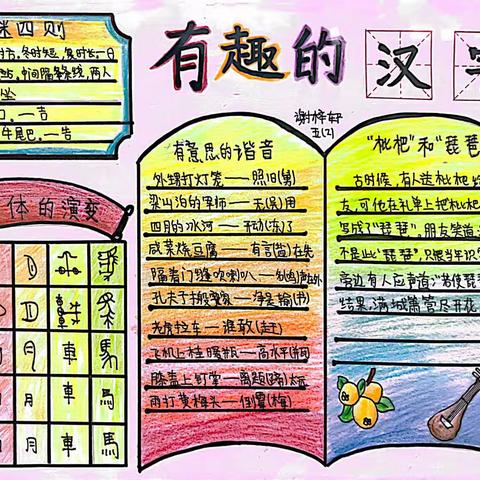 有趣的汉
谢梓妤
五(2)
谜四则
方,冬时短,夏时长,一日
站,中间隔条线,两人
坐
一吉
牛尾巴,一告
体的演变
月 車 馬
月 車 馬
有意思的谐音
外甥打灯笼——照旧(舅)
梁山泊的军师——无(吴)用
四月的冰河——开动(冻)了
咸菜烧豆腐——有言(盐)在先
隔着门缝吹喇叭——名(鸣)声在外
孔夫子搬家——净是输(书)
老虎拉车——谁敢(赶)
飞机上挂暖瓶——高水平(瓶)
膝盖上钉掌——离题(蹄)太远
雨打黄梅头——倒霉(梅)
“枇杷”和“琵琶
古时候,有人送枇杷给
友,可他在礼单上把枇杷
写成了“琵琶”,朋友笑道:
不是此“琵琶”,只恨当年识
旁边有人应声道:“若使琵琶
结果,满城箫管尽开花